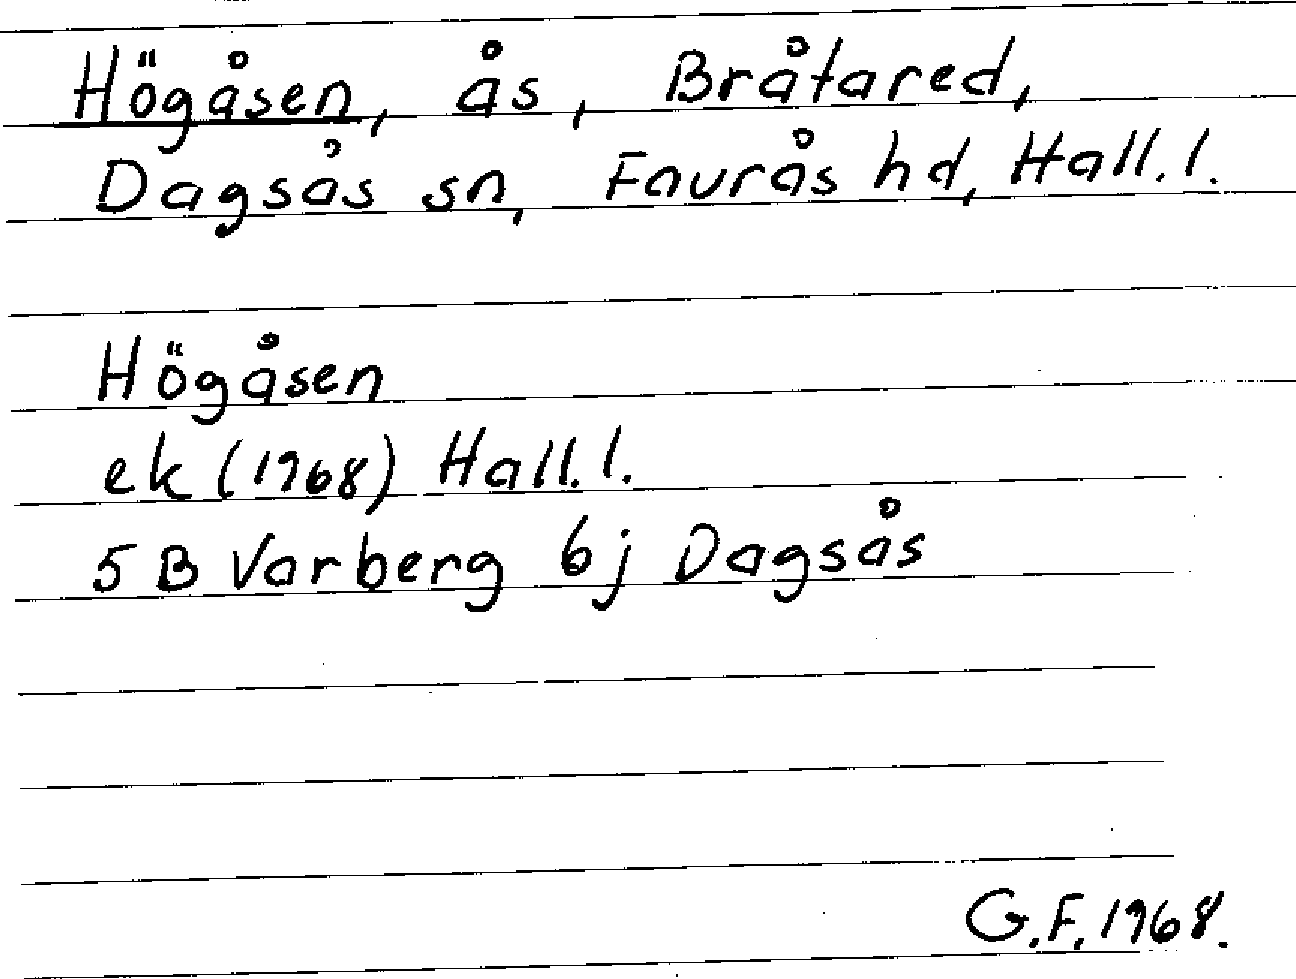 Högåsen, ås, Bråtared,
Dagsås sn, Faurås hd, Hall. l.
Högåsen
ek (1968) Hall. l.
5 B Varberg 6j Dagsås
G.F. 1968.